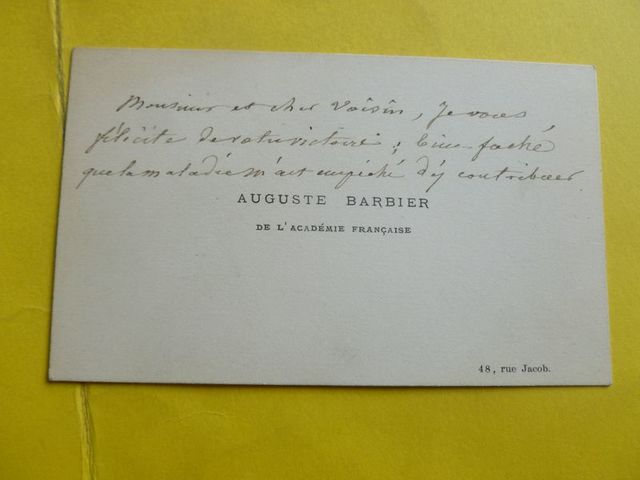 Monsieur et cher Voisin, Je vous
félicite de votre victoire ; bien faché
que la maladie m'ait empéché d'y contribuer.
AUGUSTE BARBIER
DE L'ACADÉMIE FRANÇAISE
48, rue Jacob.